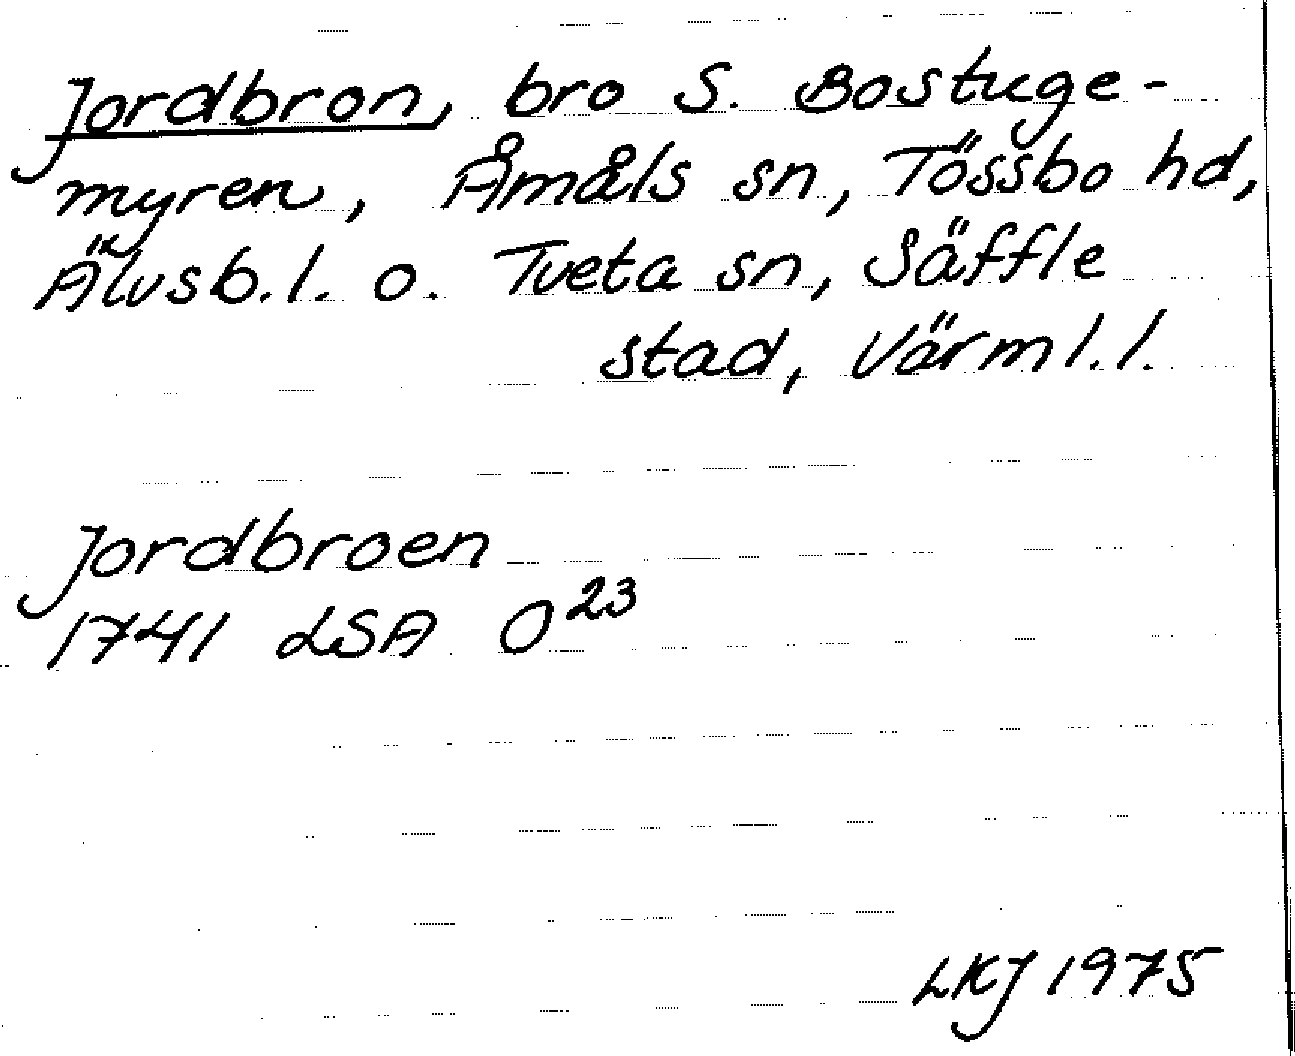 Jordbron, bro S. Bostuge-
myren, Åmåls sn, Tössbo hd,
Älvsb. l. o. Tveta sn, Säffle
stad, Värml. l.
Jordbroen
1741 LSA O 23
LKJ 1975